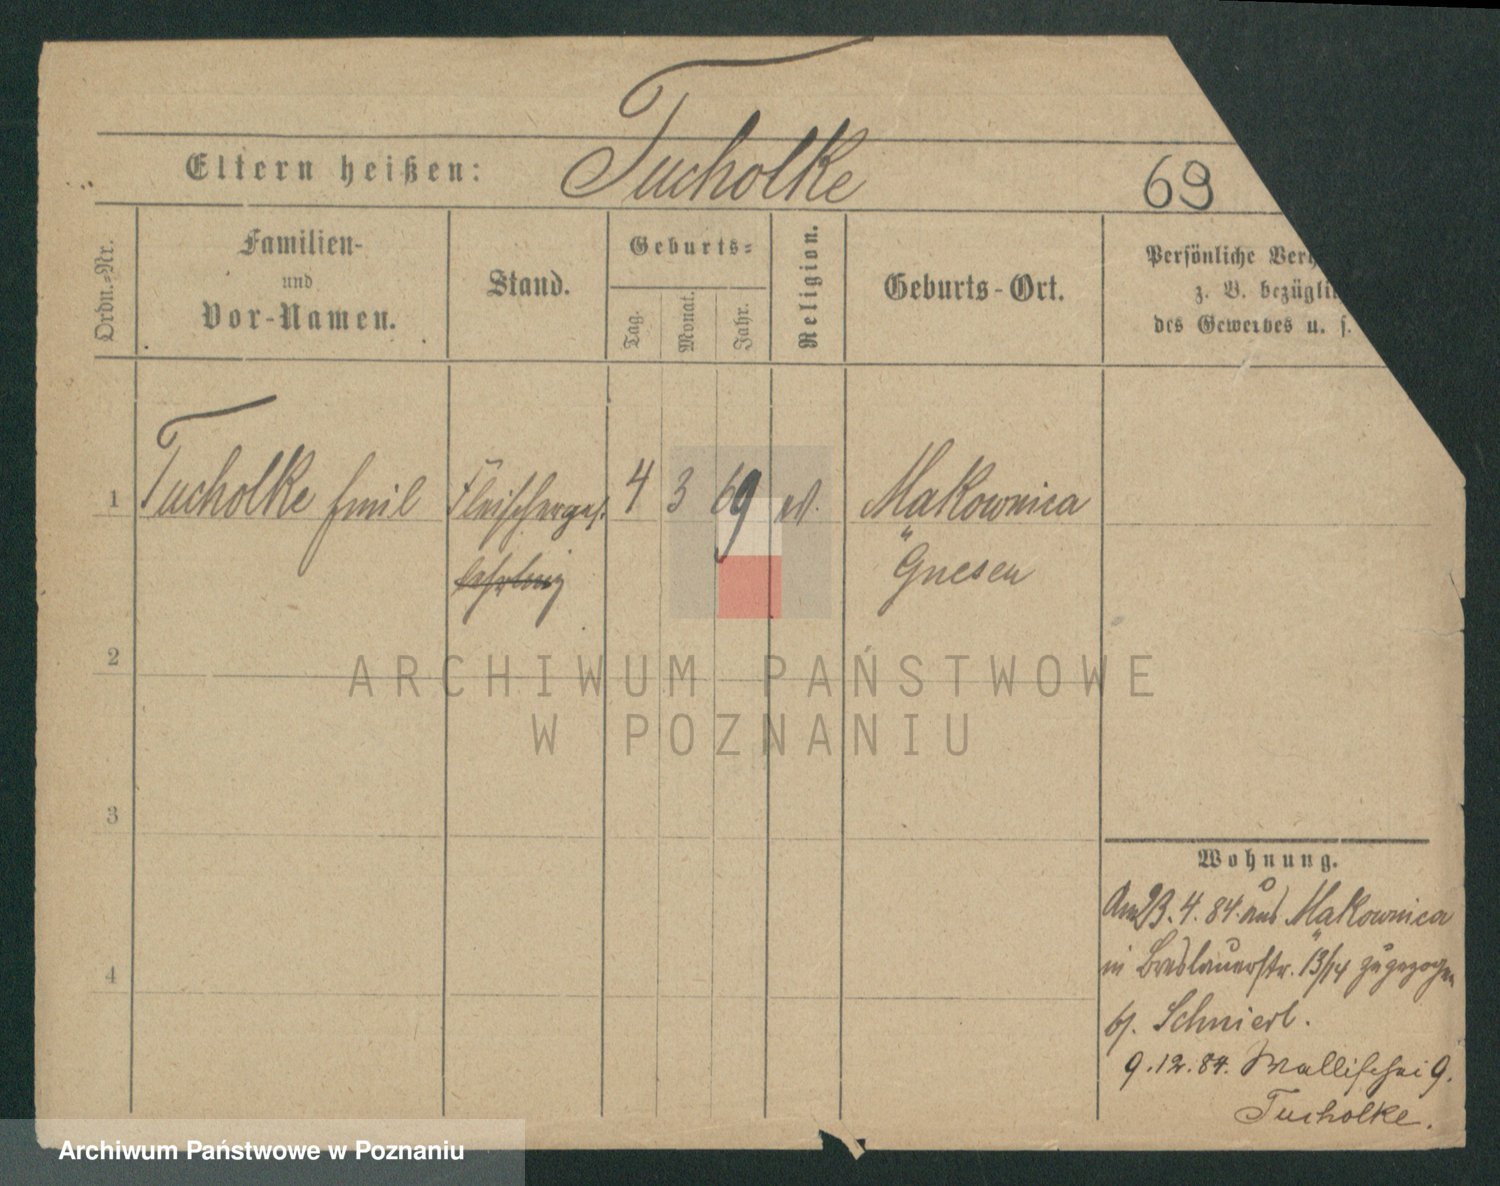 Eltern heißen: Tucholke 69
Ordn.-Nr.
Familien-
und
Vor-Namen.
Stand.
Geburts-
Tag.
Monat.
Jahr.
Religion.
Geburts-Ort.
Persönliche Ver
z. B. bezügli
des Gewerbes u. s.
1 Tucholke Emil Fleischerges. 4 3 69 ev. Makownica
lehrling " Gnesen
2
ARCHIWUM PAŃSTWOWE
W POZNANIU
3
Wohnung.
Am 23.4.84. aus Makownica
4
in Breslauerstr. 13/14 zugezogen
b/. Schnierl.
9.12.84. Wallischei 9.
Tucholke.
Archiwum Państwowe w Poznaniu